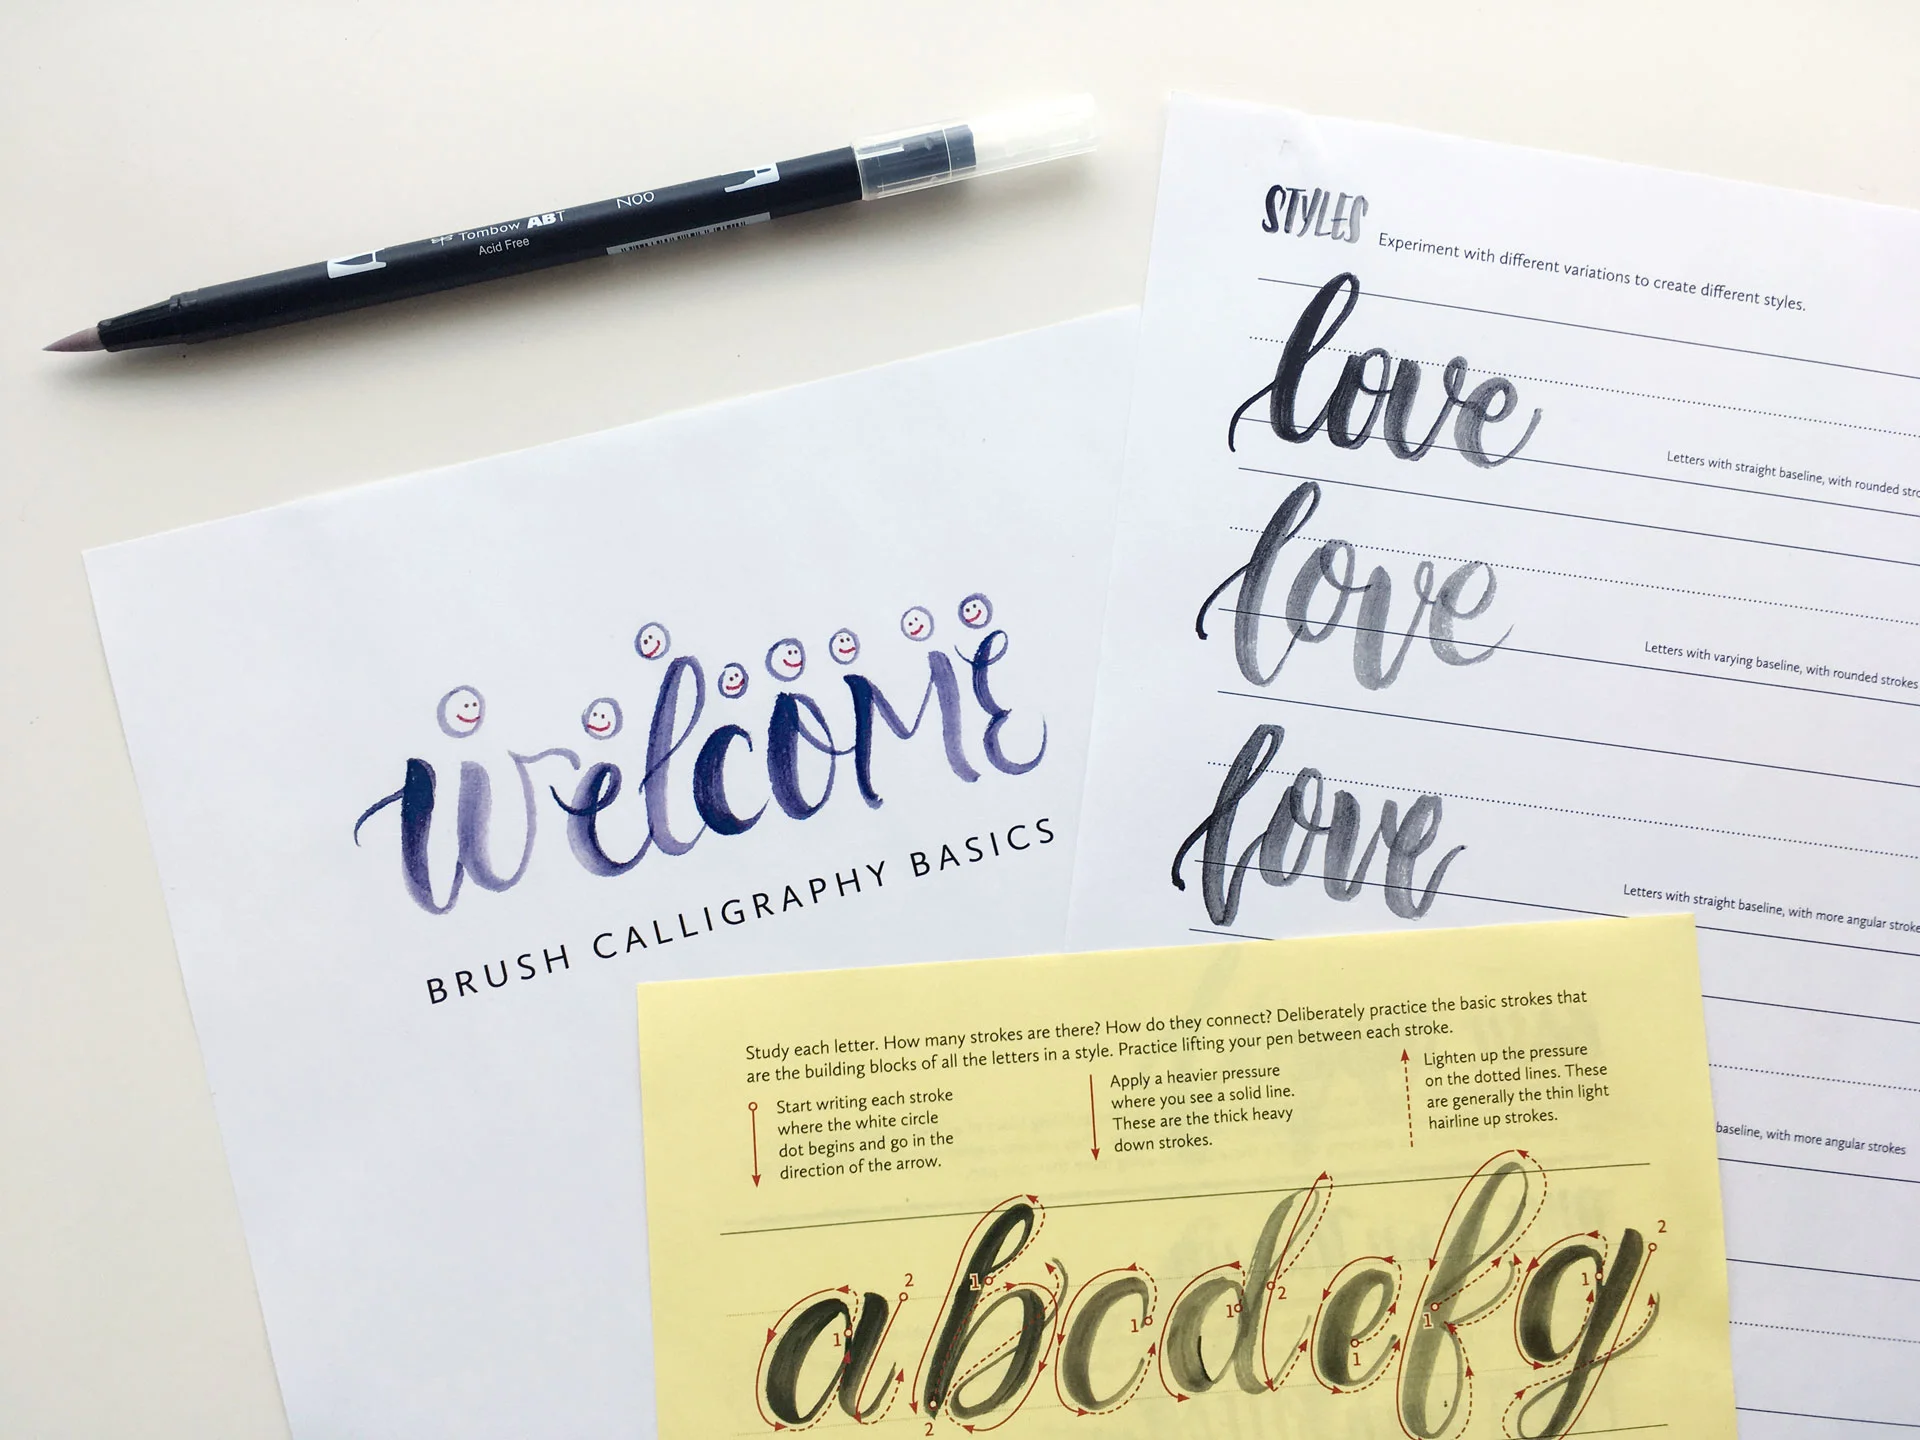 Tombow ABT
Acid Free
N00
welcome
BRUSH CALLIGRAPHY BASICS
STYLES
Experiment with different variations to create different styles.
love
Letters with straight baseline, with rounded
love
Letters with varying baseline, with rounded strokes
love
Letters with straight baseline, with more angular
baseline, with more angular strokes
Study each letter. How many strokes are there? How do they connect? Deliberately practice the basic strokes that
are the building blocks of all the letters in a style. Practice lifting your pen between each stroke.
Start writing each stroke
where the white circle
dot begins and go in the
direction of the arrow.
Apply a heavier pressure
where you see a solid line.
These are the thick heavy
down strokes.
Lighten up the pressure
on the dotted lines. These
are generally the thin light
hairline up strokes.
a b c d e f g
1 2 1 2 1 1 2 1 1 1 2